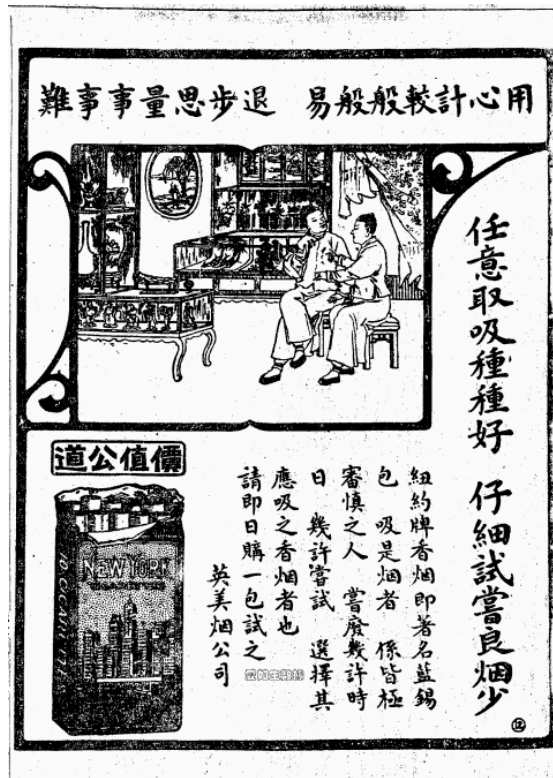 用心計較般般易 退步思量事事難
任意取吸種種好 仔細試嘗良烟少
紐約牌香烟即著名藍錫
包 吸是烟者 係皆極
審慎之人 嘗廢幾許時
日 幾許嘗試 選擇其
應吸之香烟者也
請即日購一包試之
英美烟公司
價值公道
NEW YORK
10 CIGARETTES